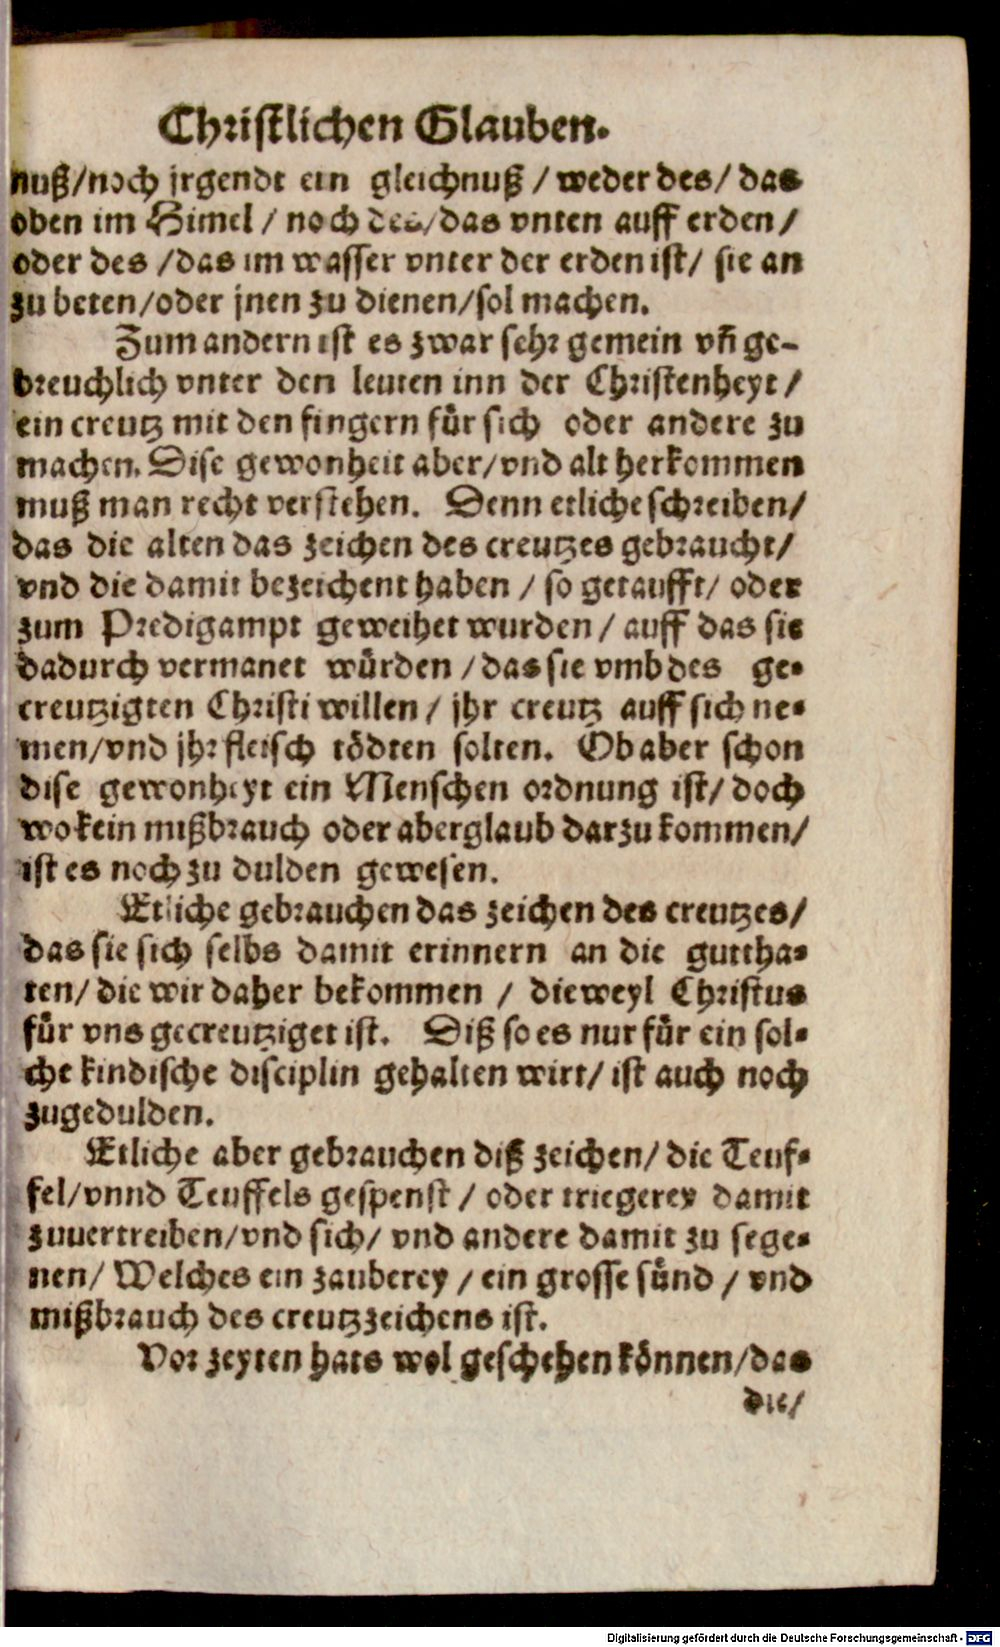 Christlichen Glauben.
nuß/noch jrgendt ein gleichnuß / weder des/ das
oben im Himel / noch des/das vnten auff erden /
oder des /das im wasser vnter der erden ist/ sie an
zu beten/oder jnen zu dienen/sol machen.
Zum andern ist es zwar sehr gemein vñ ge-
breuchlich vnter den leuten inn der Christenheyt /
ein creutz mit den fingern für sich oder andere zu
machen. Dise gewonheit aber/vnd alt herkommen
muß man recht verstehen. Denn etliche schreiben/
das die alten das zeichen des creutzes gebraucht/
vnd die damit bezeichent haben / so getaufft/ oder
zum Predigampt geweihet wurden / auff das sie
dadurch vermanet würden /das sie vmb des ge-
creutzigten Christi willen / jhr creutz auff sich ne-
men/vnd jhr fleisch tödten solten. Ob aber schon
dise gewonheyt ein Menschen ordnung ist/ doch
wo kein mißbrauch oder aberglaub darzu kommen/
ist es noch zu dulden gewesen.
Etliche gebrauchen das zeichen des creutzes/
das sie sich selbs damit erinnern an die guttha-
ten/ die wir daher bekommen / dieweyl Christus
für vns gecreutziget ist. Diß so es nur für ein sol-
che kindische disciplin gehalten wirt/ ist auch noch
zugedulden.
Etliche aber gebrauchen diß zeichen/ die Teuf-
fel/vnnd Teuffels gespenst / oder triegerey damit
zuuertreiben/vnd sich/ vnd andere damit zu sege-
nen/ Welches ein zauberey / ein grosse sünd / vnd
mißbrauch des creutzzeichens ist.
Vor zeyten hats wol geschehen können/das
die/
Digitalisierung gefördert durch die Deutsche Forschungsgemeinschaft - DFG